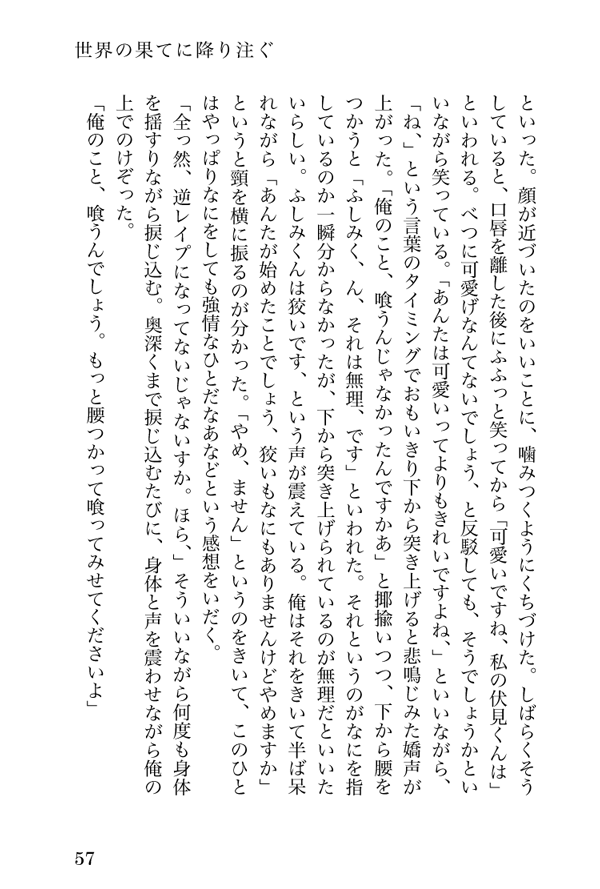 世界の果てに降り注ぐ
といった。顔が近づいたのをいいことに、噛みつくようにくちづけた。しばらくそう
していると、口唇を離した後にふふっと笑ってから「可愛いですね、私の伏見くんは」
といわれる。べつに可愛げなんてないでしょう、と反駁しても、そうでしょうかとい
いながら笑っている。「あんたは可愛いってよりもきれいですよね、」といいながら、
「ね、」という言葉のタイミングでおもいきり下から突き上げると悲鳴じみた嬌声が
上がった。「俺のこと、喰うんじゃなかったんですかあ」と揶揄いつつ、下から腰を
つかうと「ふしみく、ん、それは無理、です」といわれた。それというのがなにを指
しているのか一瞬分からなかったが、下から突き上げられているのが無理だといいた
いらしい。ふしみくんは狡いです、という声が震えている。俺はそれをきいて半ば呆
れながら「あんたが始めたことでしょう、狡いもなにもありませんけどやめますか」
というと頸を横に振るのが分かった。「やめ、ません」というのをきいて、このひと
はやっぱりなにをしても強情なひとだなあなどという感想をいだく。
「全っ然、逆レイプになってないじゃないすか。ほら、」そういいながら何度も身体
を揺すりながら捩じ込む。奥深くまで捩じ込むたびに、身体と声を震わせながら俺の
上でのけぞった。
「俺のこと、喰うんでしょう。もっと腰つかって喰ってみせてくださいよ」
57